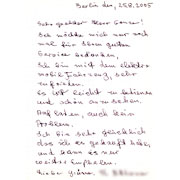 Berlin den, 25.8.2005
Sehr geehrter Herr Ganser!
Ich möchte mich nur noch
mal für Ihren guten
Service bedanken.
Ich bin mit dem elektro-
mobile Fahrzeug, sehr
zufrieden.
Es ist leicht zu bedienen
und schön anzusehen.
Auf laden, auch kein
Problem.
Ich bin sehr glücklich
das ich es gekauft habe,
und kann es nur
weiter Empfehlen.